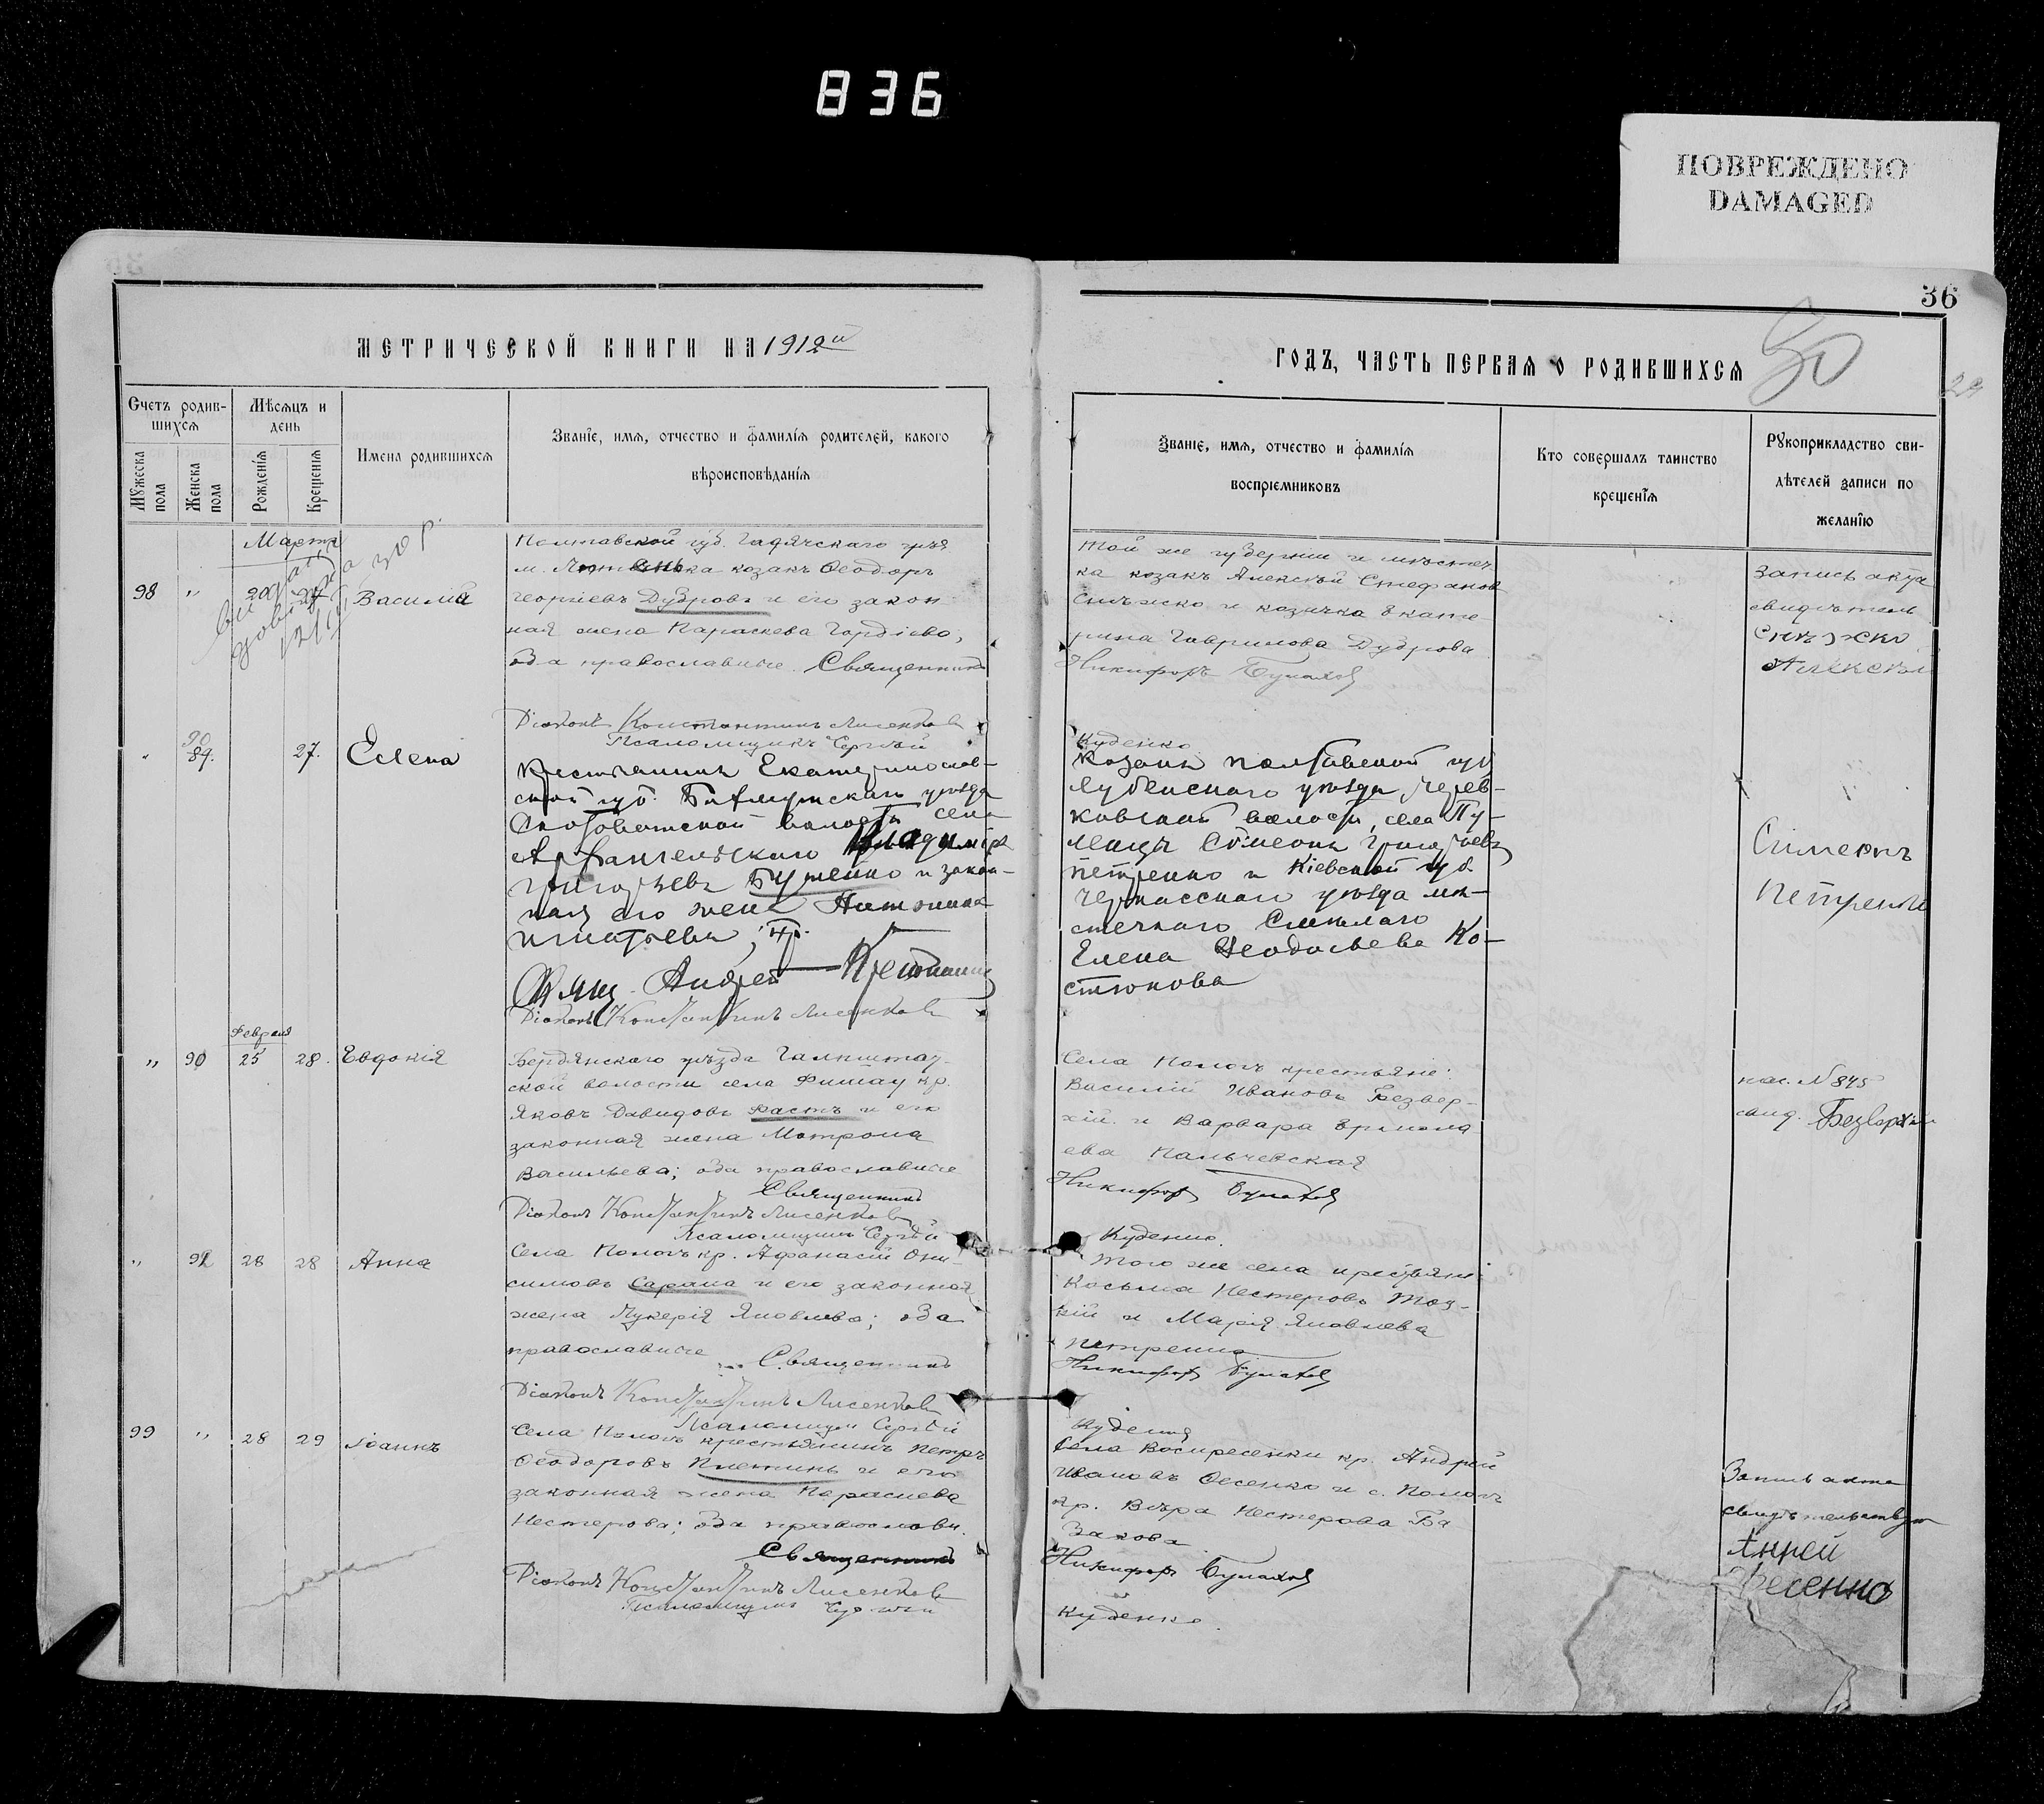 836
ПОВРЕЖДЕНО
DAMAGED
36
МЕТРИЧЕСКОЙ КНИГИ НА 1912й
ГОДЪ, ЧАСТЬ ПЕРВАЯ О РОДИВШИХСЯ
50
29
Счетъ родив-
шихся
Мѣсяцъ и
день
Мужеска
пола
Женска
пола
Рожденія
Крещенія
Имена родившихся
Званіе, имя, отчество и фамилія родителей, какого
вѣроисповѣданія
Званіе, имя, отчество и фамилія
воспріемниковъ
Кто совершалъ таинство
крещенія
Рукоприкладство сви-
дѣтелей записи по
желанію
Марта
98 " Василій
Полтавской губ. Гадячскаго уѣз.
м. козакъ Ѳеодоръ
Георгіевъ Дубровъ и его закон
ная жена Параскева Гордіева,
оба православные. Священникъ
Діаконъ Константинъ Лисенковъ
Псаломщикъ Сергѣй
Той же губерніи и мѣстеч-
ка козакъ Алексѣй Стефановъ
Снѣжко и козачка Екате-
рина Гаврилова Дуброва
Никифоръ Булахов
Куденко
Запись акта
свидѣтель
Снѣжко
Алексѣй
" 27. Елена
Крестьянинъ Екатеринослав-
ской губ. Бахмутскаго уѣзда
Скотоватской волости села
Архангельскаго Владиміръ
Григорьевъ Бутейко и закон-
ная его жена Антонина
Игнатьева, пр.
Свящ. Андрей
Діаконъ Константинъ Лисенковъ
Козакъ Полтавской губ
Лубенскаго уѣзда, Черев-
ковской волости, села Пу-
леицъ Сѵмеонъ Григорьевъ
Петренко и Кіевской губ
Черкасскаго уѣзда мѣ-
стечкаго Смѣлаго
Елена Ѳеодосьева Ко-
стюкова
Симеонъ
Петренко
Февраля
" 90 25 28. Евдокія
Бердянскаго уѣзда Гальбштад-
ской волости села Фишау кр.
Яковъ Давидовъ Фастъ и его
законная жена Матрона
Васильева; оба православные
Священникъ
Діаконъ Константинъ Лисенковъ
Псаломщикъ Сергѣй
Села Пологъ крестьяне:
Василій Ивановъ Безвер-
хій и Варвара Ермола
ева Пальчевская
Никифоръ Булахов
Куденко.
пас. N 845
свид. Безверхій
" 28 28 Анна
Села Пологъ кр. Афанасій Они-
симовъ Сарана и его законная
жена Лукерія Яковлева; оба
православные Священникъ
Діаконъ Константинъ Лисенковъ
Псаломщикъ Сергѣй
Того же села крестьяне
Косьма Нестеровъ Тоц-
кій и Марія Яковлева
Петренко
Никифоръ Булахов
Куденко
99 " 28 29 Іоаннъ
Села Пологъ крестьянинъ Петръ
Ѳеодоровъ Плетинь и его
законная жена Параскева
Нестерова; оба православн.
Священникъ
Діаконъ Константинъ Лисенковъ
Псаломщикъ Сергѣй
Села Воскресенки кр. Андрей
Ивановъ Фесенко и с. Пологъ
кр. Вѣра Нестерова Ба
закова
Никифоръ Булахов
Куденко.
Запись акта
свидѣтельствую
Анрей
Фесенко